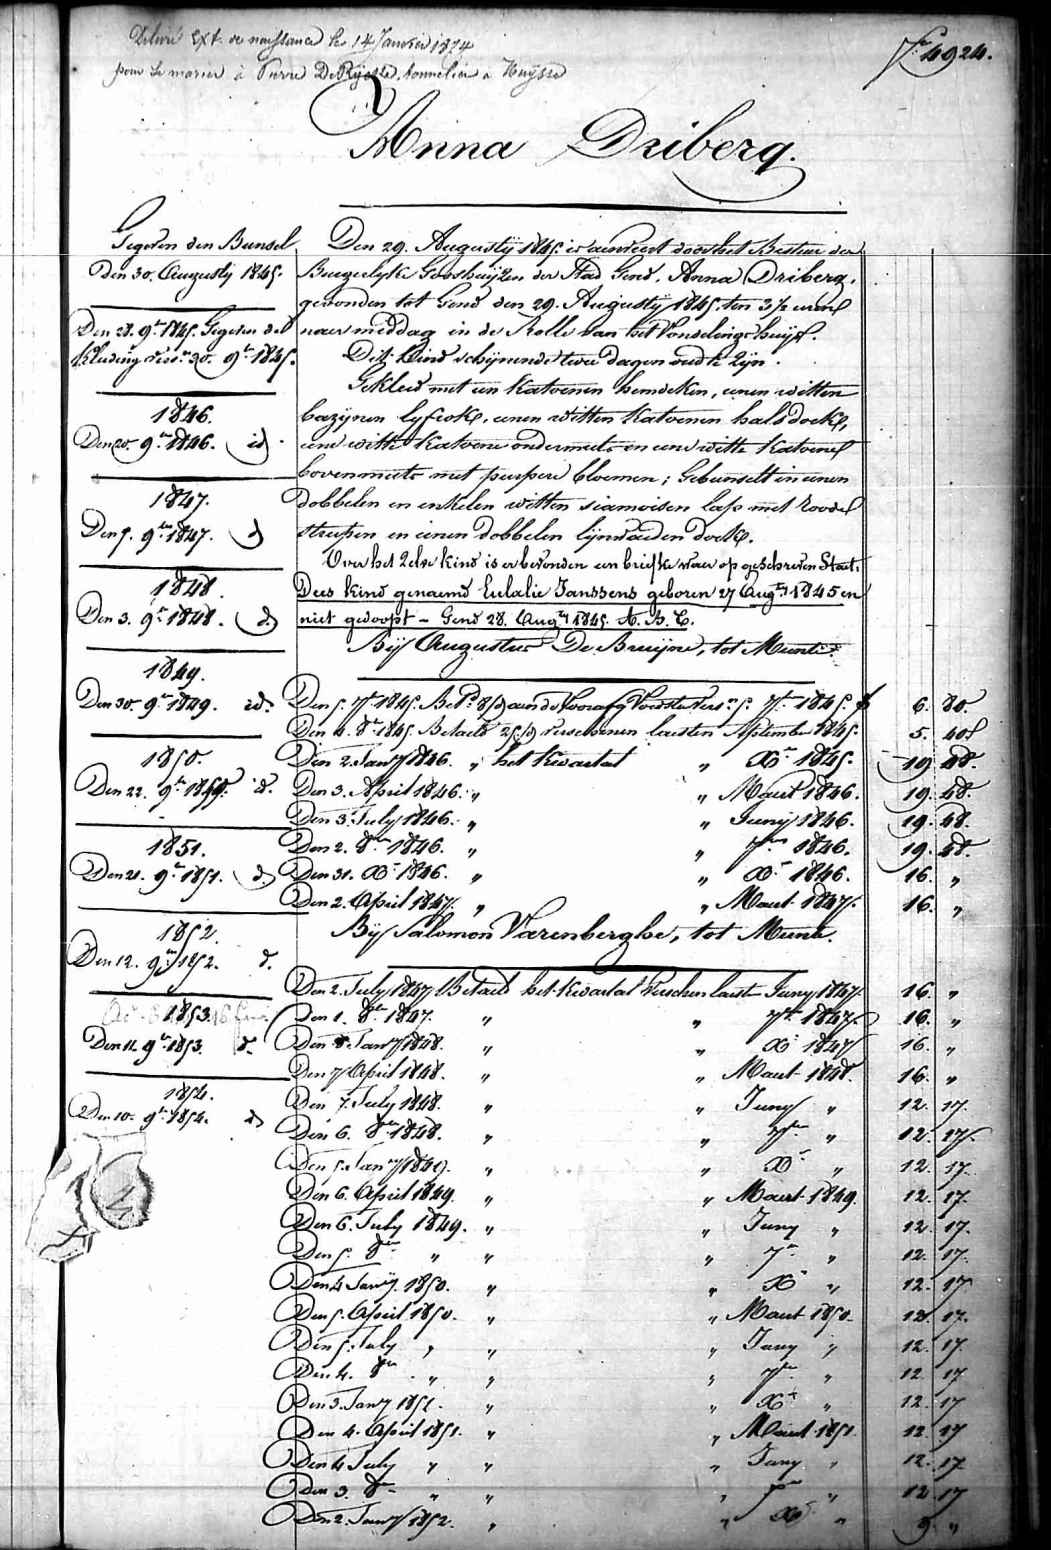 Délivré Ext. de naissance le 14 Janvier 1874
pour se marier à Pierre De Rijcke, tonnelier à Huysse
N.º 4924.
Anna Driberg.
Gegeven den Bunsel
Den 30. Augustij 1845.
Den 28. 9.ber 1845. Gegeven de
Kleeding vers. 30. 9.ber 1845.
1846.
Den 20. 9.ber 1846. id.
1847.
Den 5. 9.ber 1847. d
1848.
Den 3. 9.ber 1848. d
1849.
Den 30. 9.ber 1849. id.
1850.
Den 22. 9.ber id.
1851.
Den 21. 9.ber 1851. d.
1852.
Den 12. 9.ber 1852. d.
1853.
Den 11. 9.ber 1853. d.
1854.
Den 10. 9.ber 1854. d
Den 29. Augustij 1845. is aenveert door het Bestier der
Burgerlyke Godshuijzen der Stad Gend, Anna Driberg,
gevonden tot Gend den 29. Augustij 1845. ten 3½ uren
naer middag in de Rolle van het Vondelingshuijs.
Dit kind schijnende twee dagen oud te zijn.
Gekleed met een katoenen hemdeken, eenen witten
bazijnen lyfrok, eenen witten katoenen halsdoek,
eene witte katoene ondermuts en eene witte katoene
bovenmuts met purpere bloemen; Gebunselt in eenen
dobbelen en enkelen witten siamoisen lap met roode
streepen en eenen dobbelen lijnwaeden doek.
Over het zelve kind is er bevonden een briefke waer op geschreven staet:
Dees kind genaemd Eulalie Janssens geboren 27 Aug.ty 1845 en
niet gedoopt - Gend 28. Aug.ty 1845. A. B. C.
Bij Augustus De Bruijne, tot Munte.
Den 5. 7.ber 1845. 5. 7.ber 1845. f 6. 80
Den 4. 8.ber 1845. Betaeld verschenen laesten September 1845. 5. 40
Den 2. Janry 1846. „ het kwartael „ X.ber 1845. 19. 48.
Den 3. April 1846. „ „ Maert 1846. 19. 48.
Den 3. July 1846. „ „ Junij 1846. 19. 48.
Den 2. 8.ber 1846. „ „ 7.ber 1846. 19. 48.
Den 31. X.ber 1846. „ „ X.ber 1846. 16. „
Den 2. April 1847. „ „ Maert 1847. 16. „
Bij Salomon Varenberghe, tot Munte.
Den 2. July 1847 Betaeld het kwartael Verschen laest Juny 1847. 16. „
Den 1. 8.ber 1847. „ „ 7.ber 1847. 16. „
Den Janry 1848. „ „ X.ber 1847 16. „
Den 7 April 1848. „ „ Maert 1848. 16. „
Den 7. July 1848. „ „ Juny „ 12. 17.
Den 6. 8.ber 1848. „ „ 7.ber „ 12. 17.
Den 5. Janry 1849. „ „ X.ber „ 12. 17.
Den 6. April 1849. „ „ Maert 1849. 12. 17.
Den 6. July 1849. „ „ Juny „ 12. 17.
Den 5. 8.ber „ „ „ 7.ber „ 12. 17.
Den 4 Janry 1850. „ „ X.ber „ 12. 17.
Den 5. April 1850. „ „ Maert 1850. 12. 17.
Den 5. July „ „ „ Juny „ 12. 17.
Den 4. 8.ber „ „ „ 7.ber „ 12 17
Den 3. Janry 1851. „ „ X.ber „ 12. 17
Den 4. April 1851. „ „ Maert 1851. 12. 17
Den 4 July „ „ „ Juny „ 12. 17
Den 3. 8.ber „ „ „ 7.ber „ 12. 17
Den 2. Janry 1852. „ „ X.ber „ 9. „